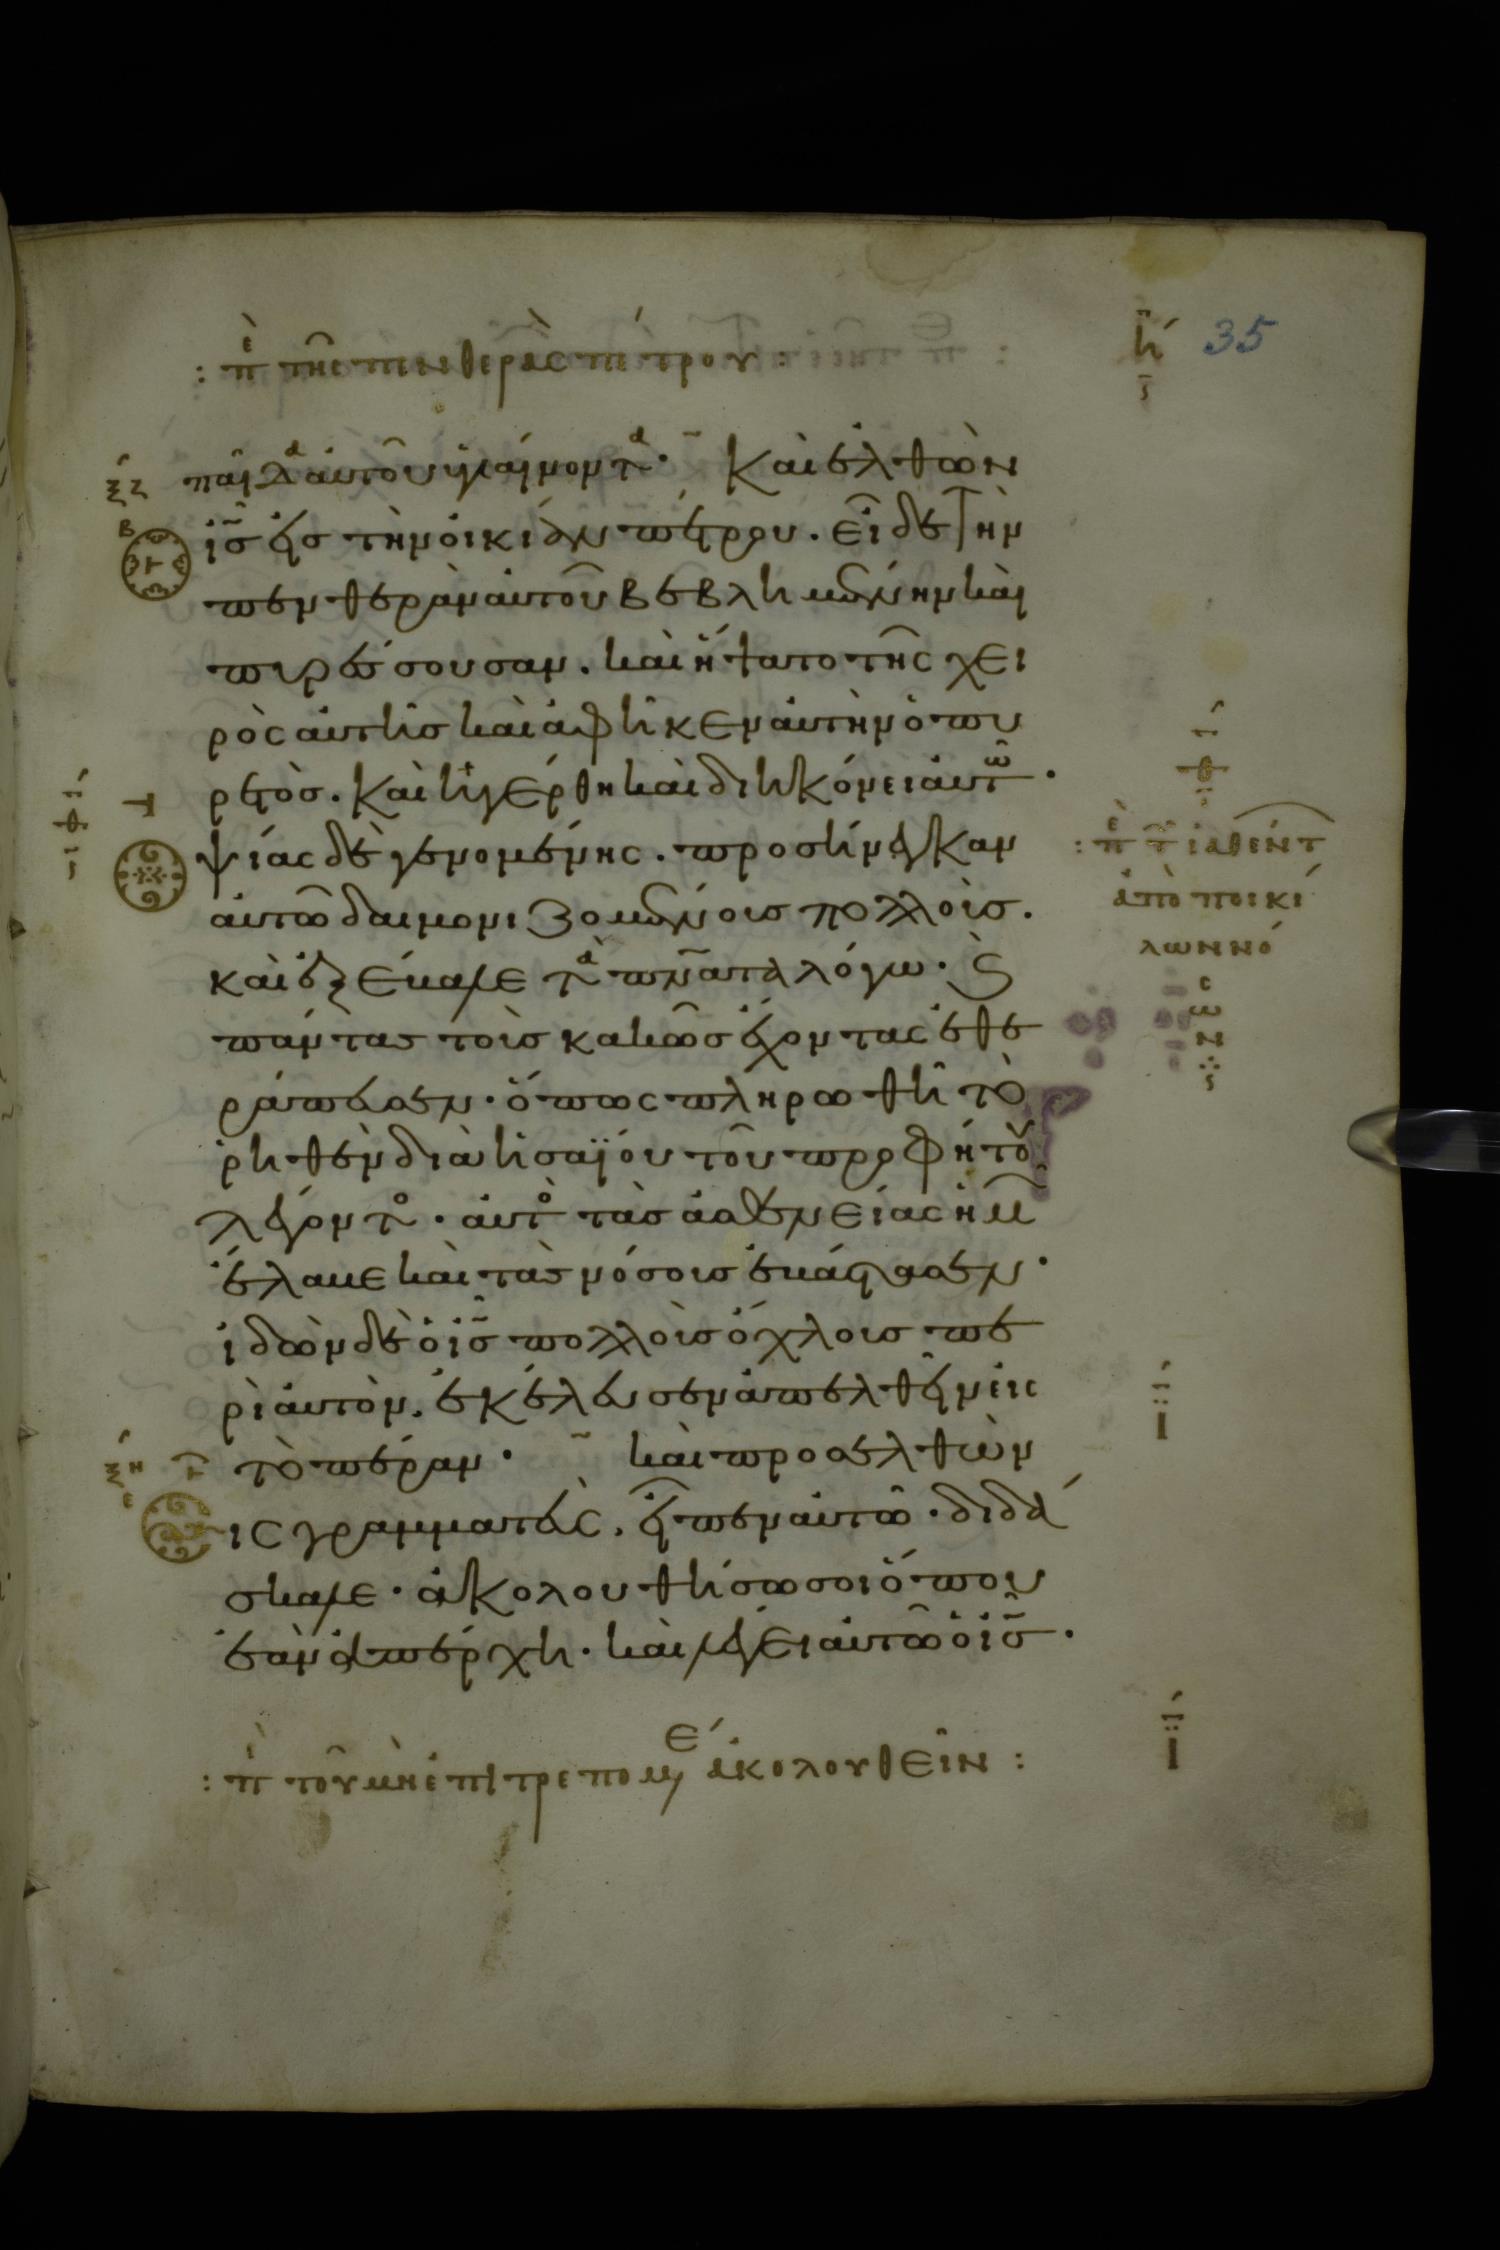 : ἐπ τῆς πενθερᾶς πέτρου :
η 35
ϛ
ξζ
β
παῖδα αὐτοῦ ὑγιαίνοντα. Καὶ ἐλθὼν
ἰς εἰς τὴν οἰκίαν πέτρου. εἶδε τὴν
πενθερὰν αὐτοῦ βεβλημένην καὶ
πυρέσσουσαν. καὶ ἥψατο τῆς χει
ρὸς αὐτῆς καὶ ἀφῆκεν αὐτὴν ὁ πυ
ρετὸς. Καὶ ἠγέρθη καὶ διηκόνει αὐτῶ.
ψίας δὲ γενομένης. προσήνεγκαν
αὐτῶ δαιμονιζομένους πολλοὺς.
καὶ ἐξέβαλε τὰ πνατα λόγω. Ϛ
πάντας τοὺς κακῶς ἔχοντας ἐθε
ράπευσεν. ὅπως πληρωθῆ τὸ
ῥηθὲν διὰ ἡσαΐου τοῦ προφήτου
λέγοντος. αὐτὸς τὰς ἀσθενείας ἡμ
ἔλαβε καὶ τὰς νόσους ἐβάστασεν.
ἰδὼν δὲ ὁ ἰς πολλοὺς ὄχλους πε
ρὶ αὐτὸν. ἐκέλευσεν ἀπελθεῖν εἰς
τὸ πέραν. καὶ προσελθὼν
ις γραμματεὺς. εἶπεν αὐτῶ. διδά
σκαλε. ἀκολουθήσω σοι ὅπου
ἐὰν ἀπέρχη. καὶ λέγει αὐτῶ ὁ ἰς.
: ἐπ τ ἰαθέντ
ἀπὸ ποικί
λων νό
ξη
: π τοῦ μὴ ἐπιτρεπομε ἀκολουθεῖν :